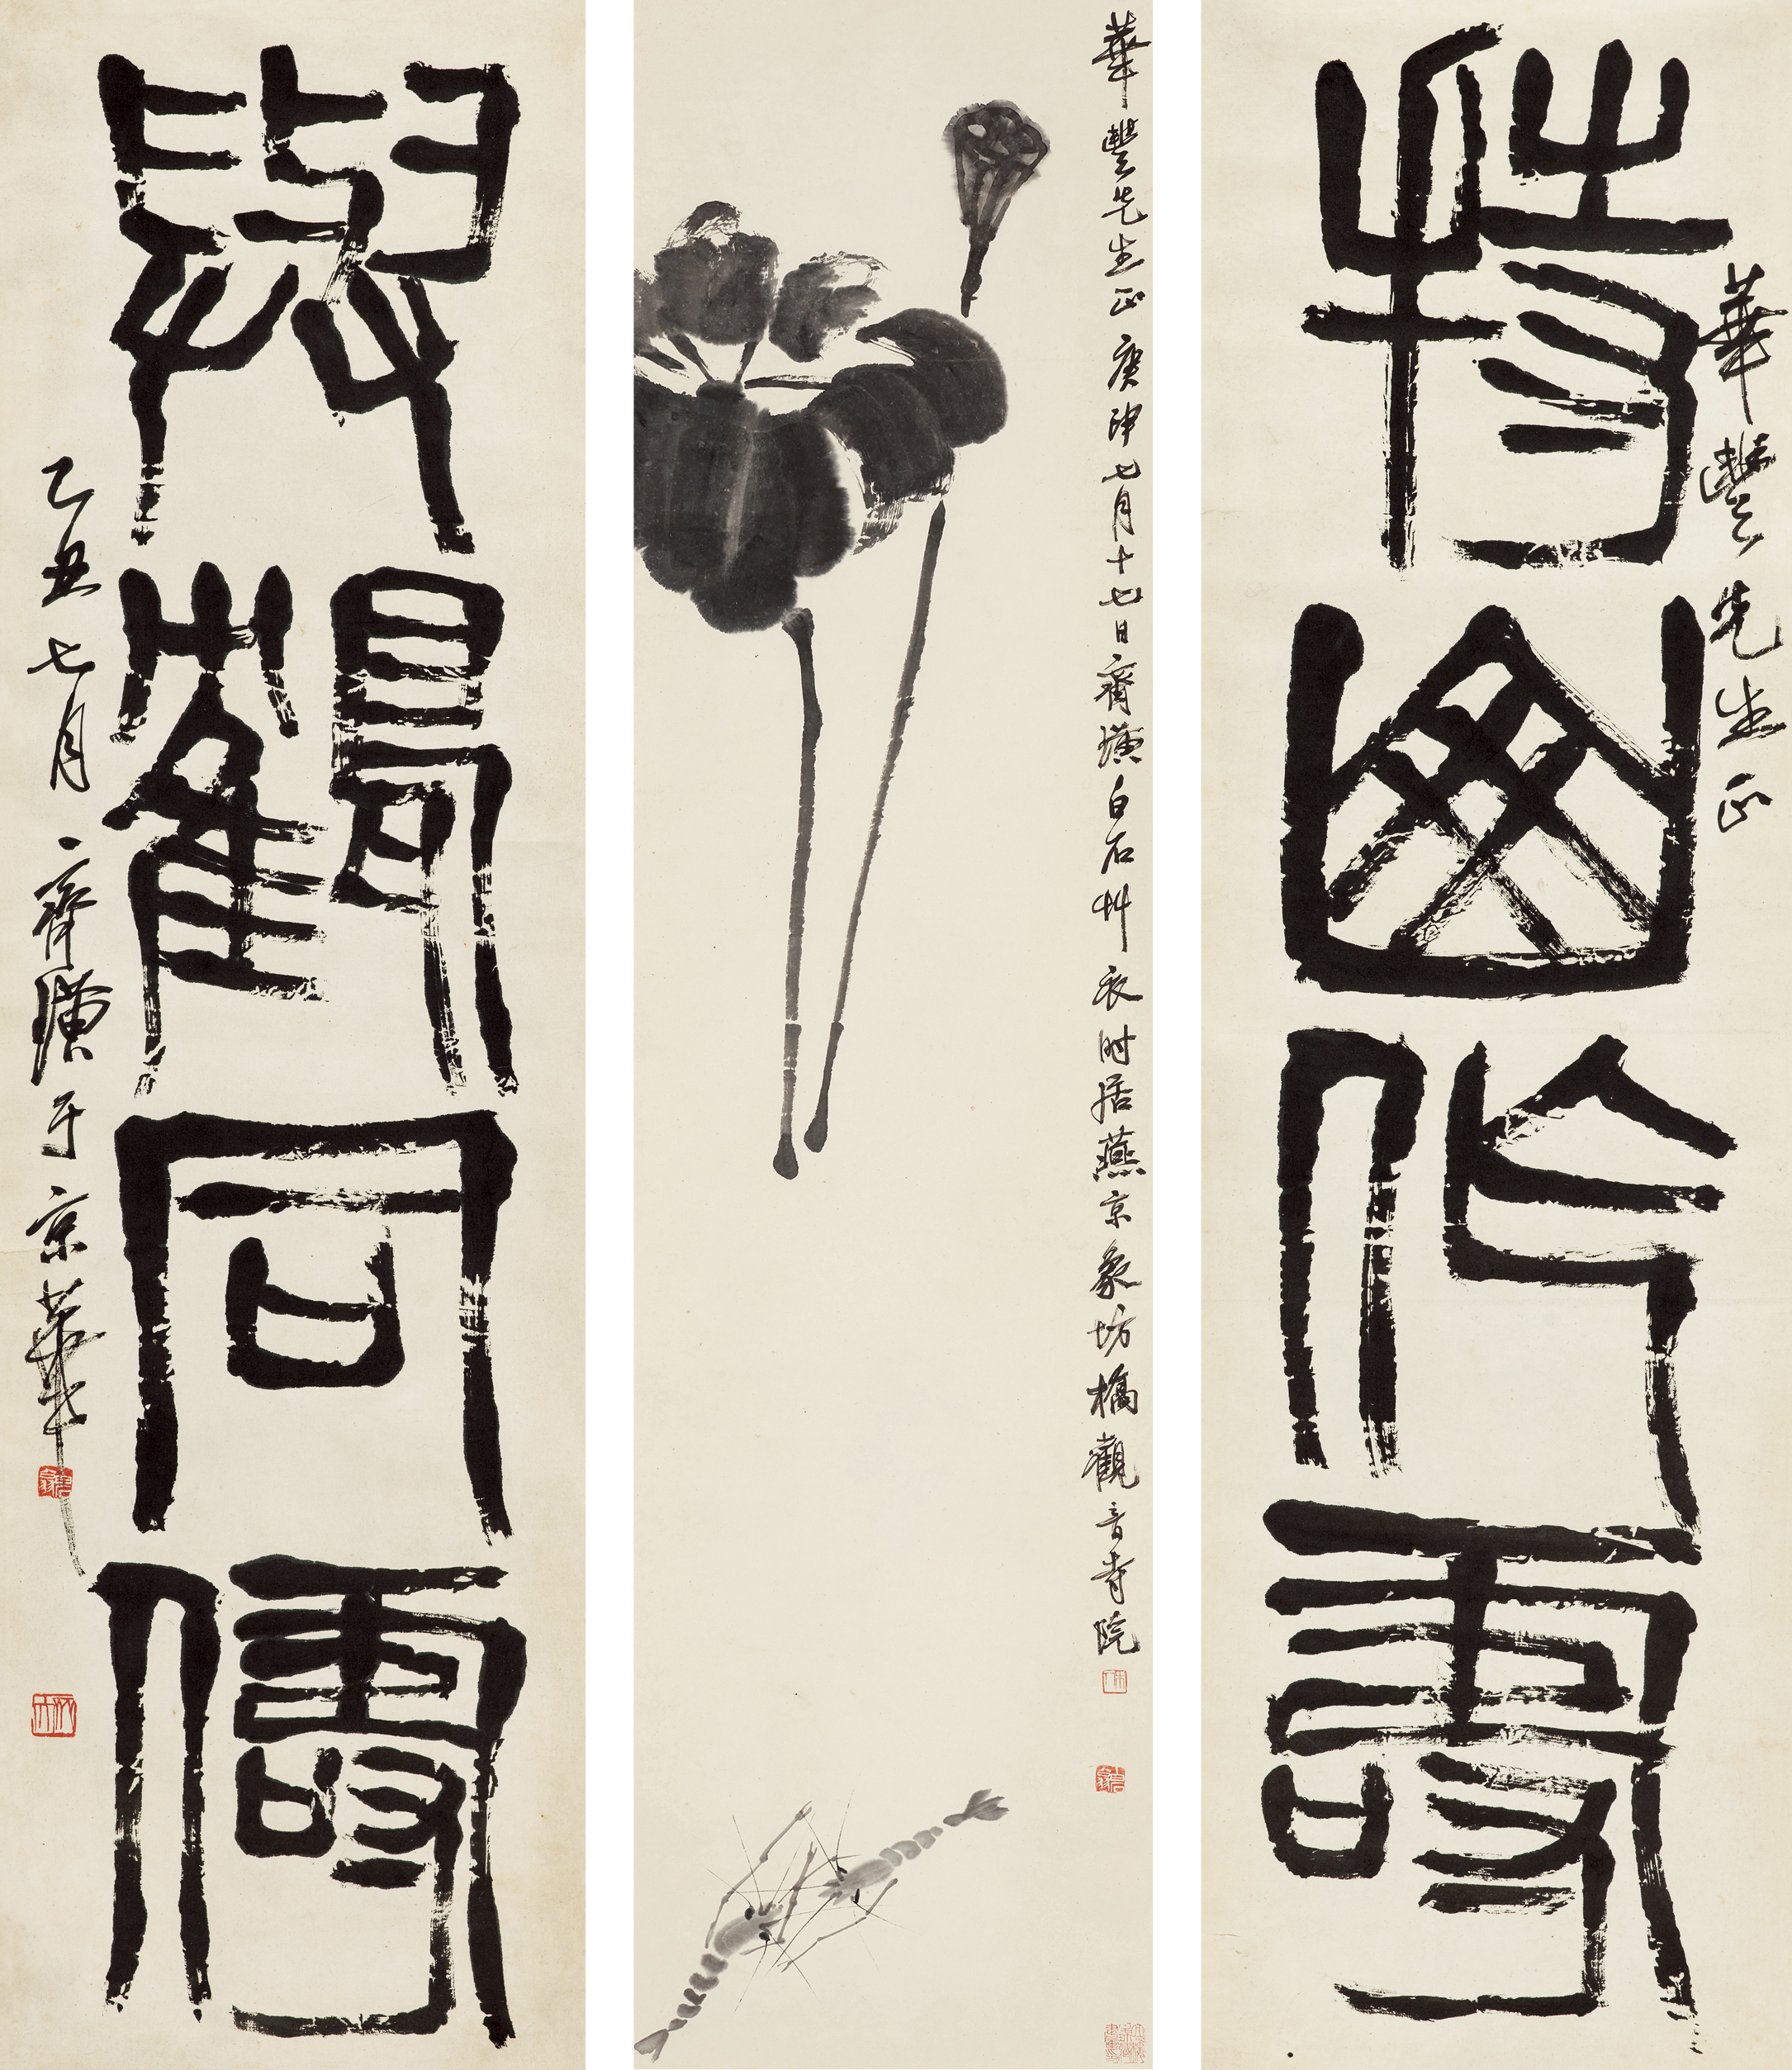 華豐先生正
持山作壽
華豐先生正庚申七月十七日齊璜白石艸衣时居燕京象坊橋觀音寺院
與鶴同儔
乙丑七月齊璜于京華